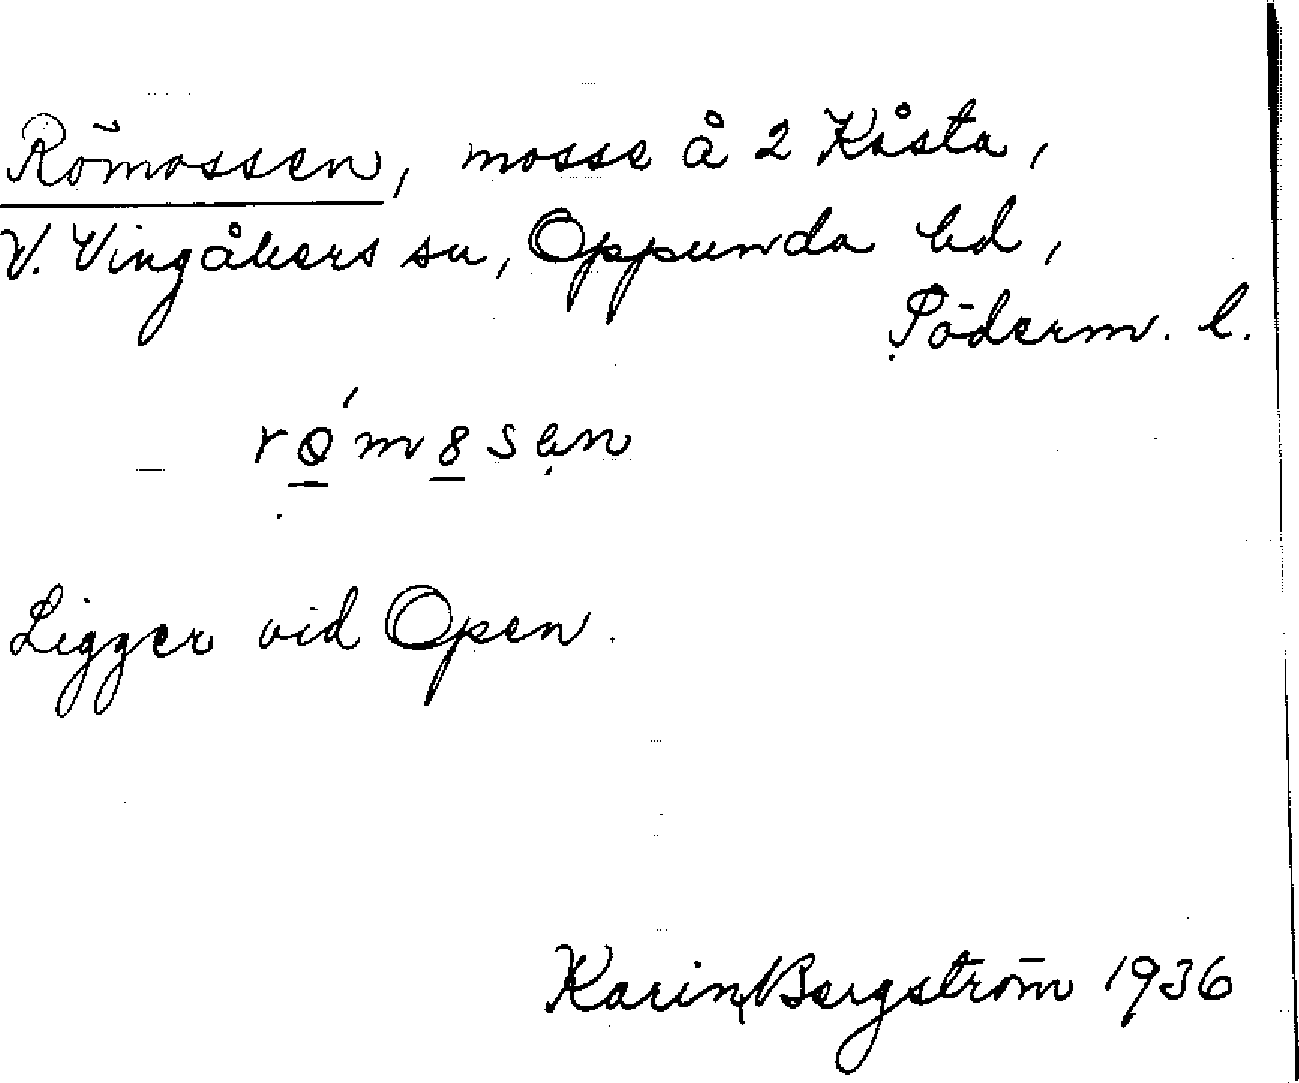 Römossen, mosse å 2 Kåsta,
V. Vingåkers sn, Oppunda hd,
Söderm. l.
Ligger vid Open.
Karin Bergström 1936